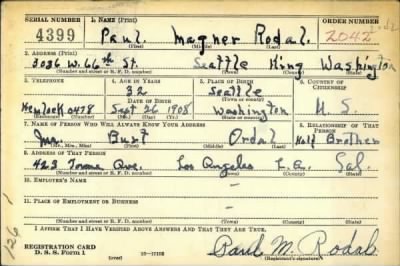 SERIAL NUMBER 1. NAME (Print) ORDER NUMBER
4399 Paul Magner Rodal. 2042
(First) (Middle) (Last)
2. ADDRESS (Print)
3036 W. 66th St. Seattle King Washington
(Number and street or R. F. D. number) (Town) (County) (State)
3. TELEPHONE 4. AGE IN YEARS 5. PLACE OF BIRTH 6. COUNTRY OF CITIZENSHIP
32 Seattle
DATE OF BIRTH (Town or county)
Hemlock 0478 Sept 26 1908 Washington U. S.
(Exchange) (No.) (Mo.) (Day) (Yr.) (State or country)
7. NAME OF PERSON WHO WILL ALWAYS KNOW YOUR ADDRESS 8. RELATIONSHIP OF THAT PERSON
Burt Ordal Half Brother
(Mr., Mrs., Miss) (First) (Middle) (Last)
9. ADDRESS OF THAT PERSON
423 Ave. Los Angeles L.A. Cal.
(Number and street or R. F. D. number) (Town) (County) (State)
10. EMPLOYER'S NAME
-
11. PLACE OF EMPLOYMENT OR BUSINESS
-
(Number and street or R. F. D. number) (Town) (County) (State)
I AFFIRM THAT I HAVE VERIFIED ABOVE ANSWERS AND THAT THEY ARE TRUE.
REGISTRATION CARD
D. S. S. Form 1 (over) Paul M. Rodal
(Registrant's signature)
126